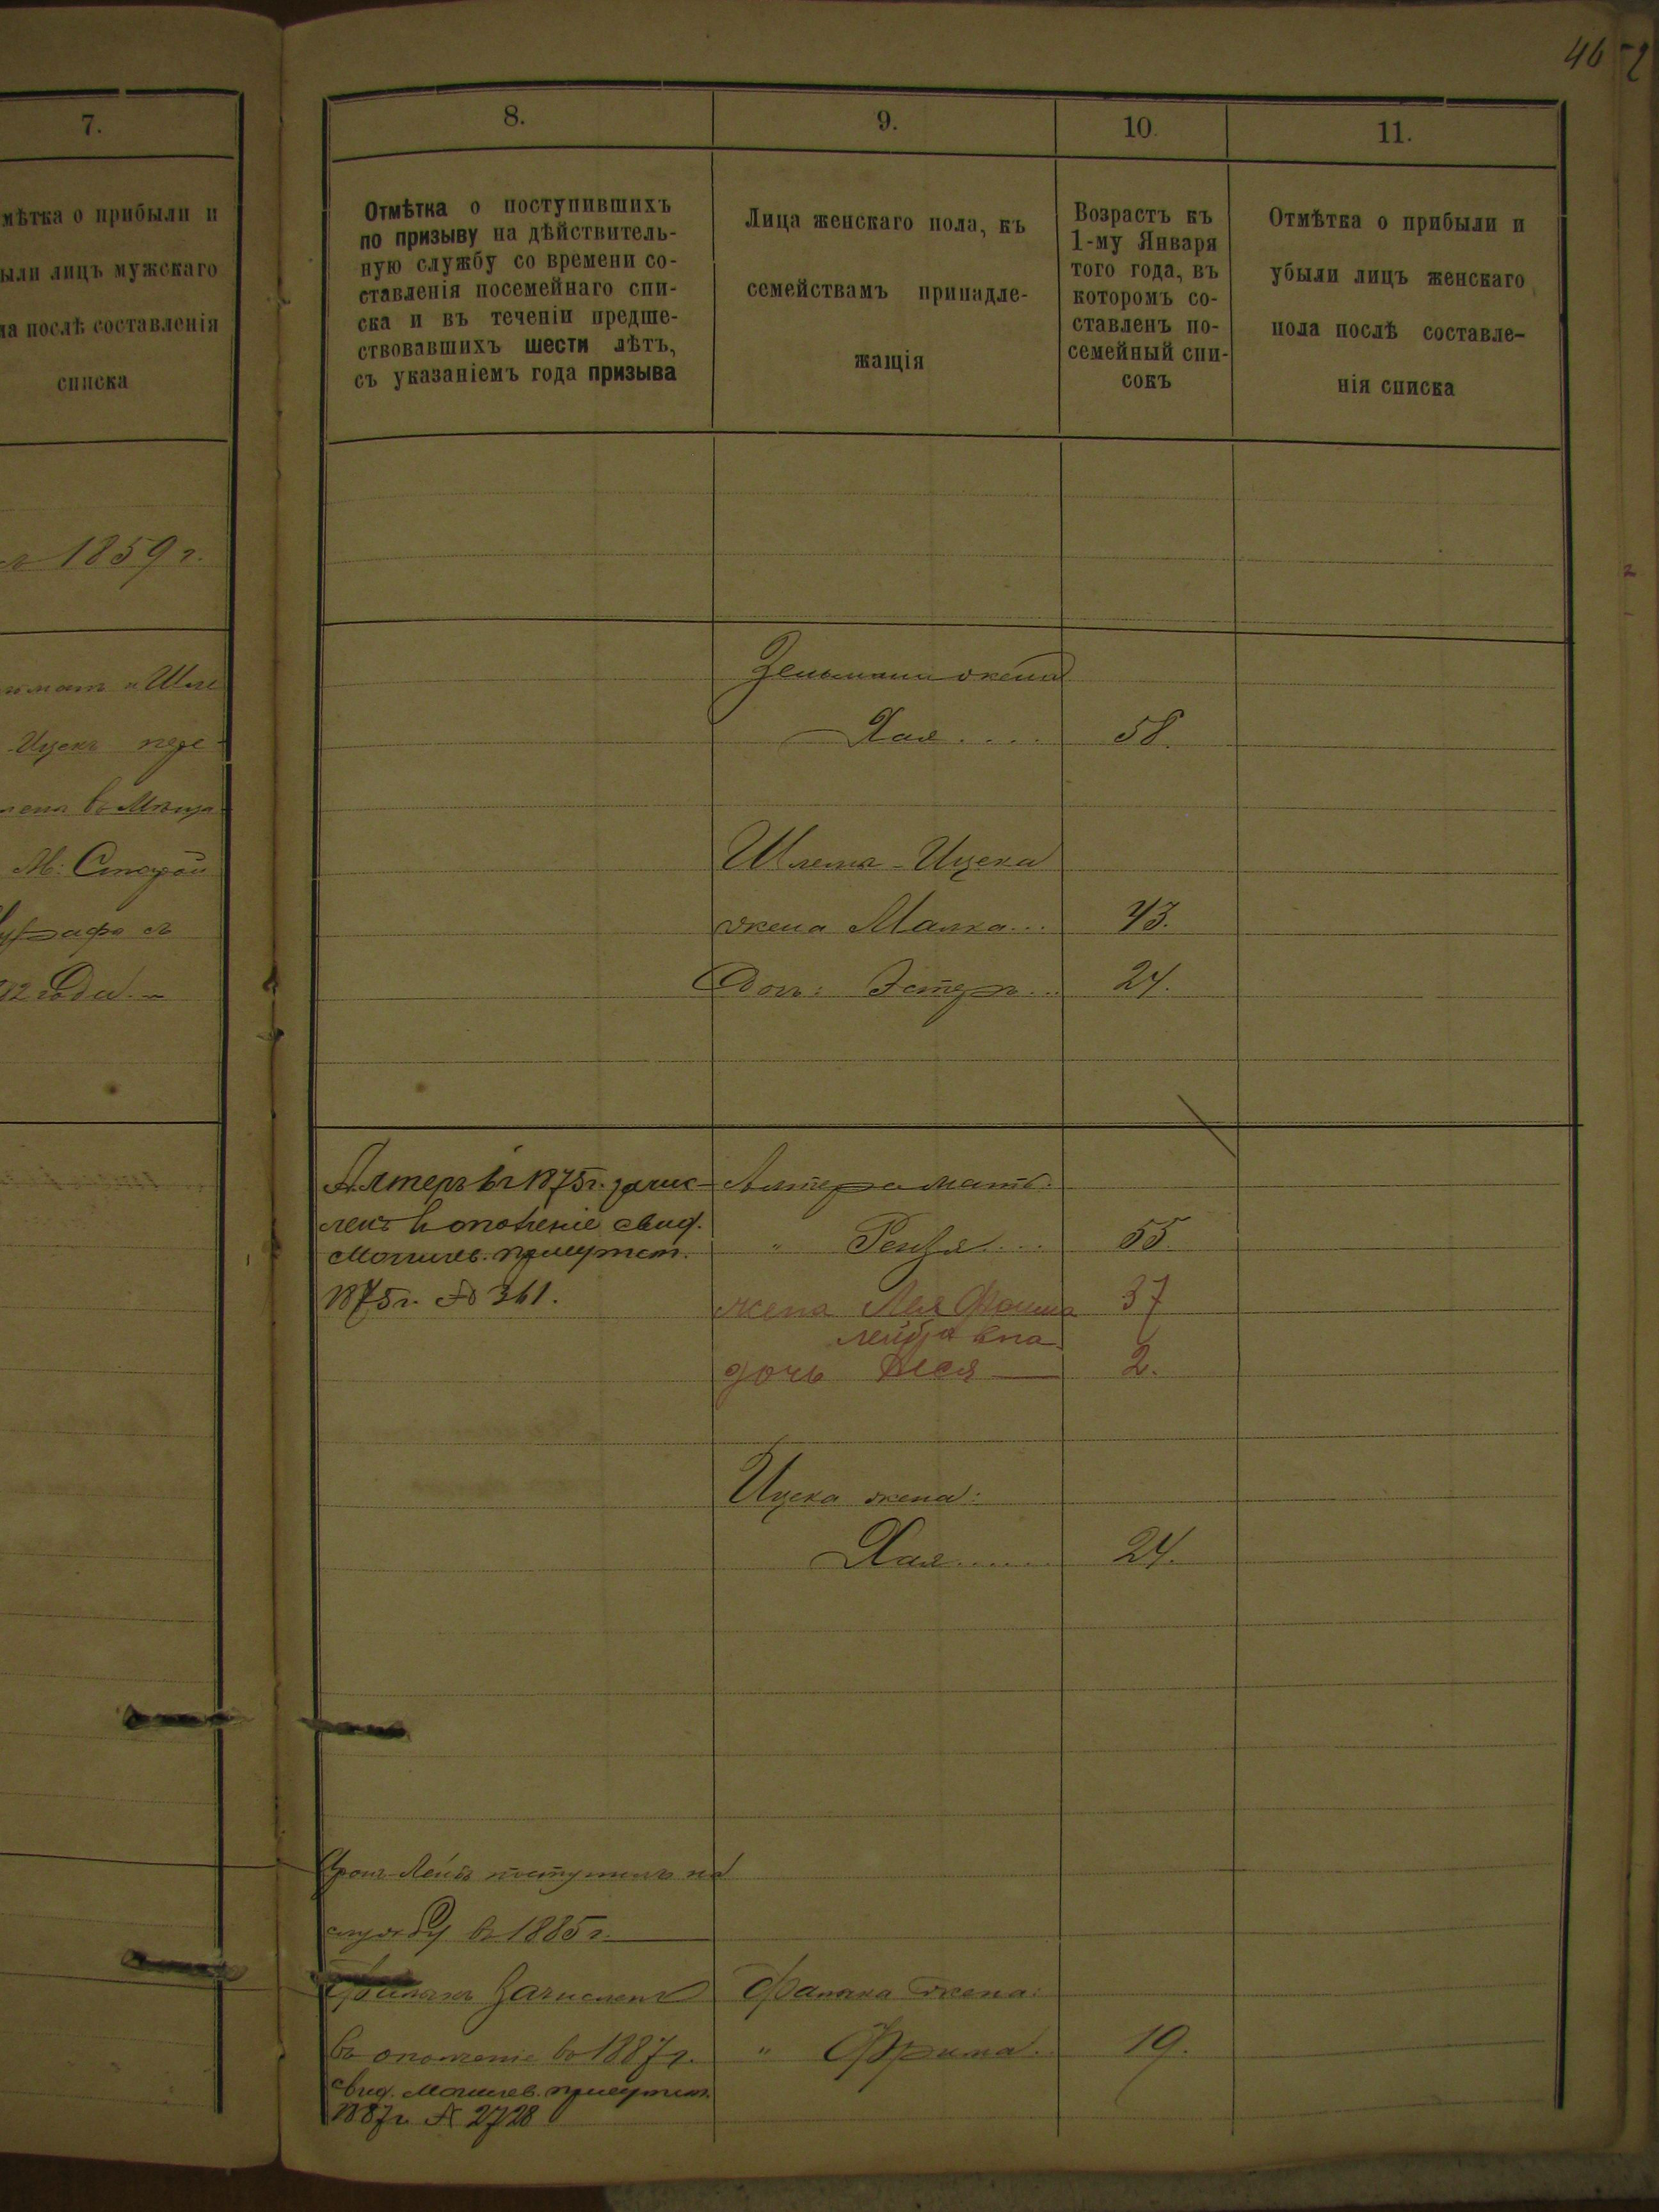 46
7.
мѣтка о прибыли и
ыли лицъ мужскаго
ла послѣ составленія
списка
1859 г.
и Шле
Ицекъ пере-
М: Старой
8.
Отмѣтка о поступившихъ
по призыву на дѣйствитель-
ную службу со времени со-
ставленія посемейнаго спи-
ска и въ теченіи предше-
ствовавшихъ шести лѣтъ,
съ указаніемъ года призыва
9.
Лица женскаго пола, къ
семействамъ принадле-
жащія
10.
Возрастъ къ
1-му Января
того года, въ
которомъ со-
ставленъ по-
семейный спи-
сокъ
11.
Отмѣтка о прибыли и
убыли лицъ женскаго
пола послѣ составле-
нія списка
Зельмана жена
Хая.... 58.
Шлема-Ицека
жена Малка... 43.
Доч: Эстеръ... 24.
Алтеръ въ 1875 г. зачис-
ленъ в ополченіе свид.
Могилев. присутст.
1875 г. № 361.
Алтера мать:
" Рейзя.... 55.
жена Лея Фейга 37
лейбовна
дочь Тася 2.
Ицека жена:
Хая...... 24.
Лейба поступилъ на
службу въ 1885 г.
зачисленъ
въ ополченіе въ 1887 г.
свид. Могилев. присутст.
1887 г. № 2728
жена:
" Фрима. 19.